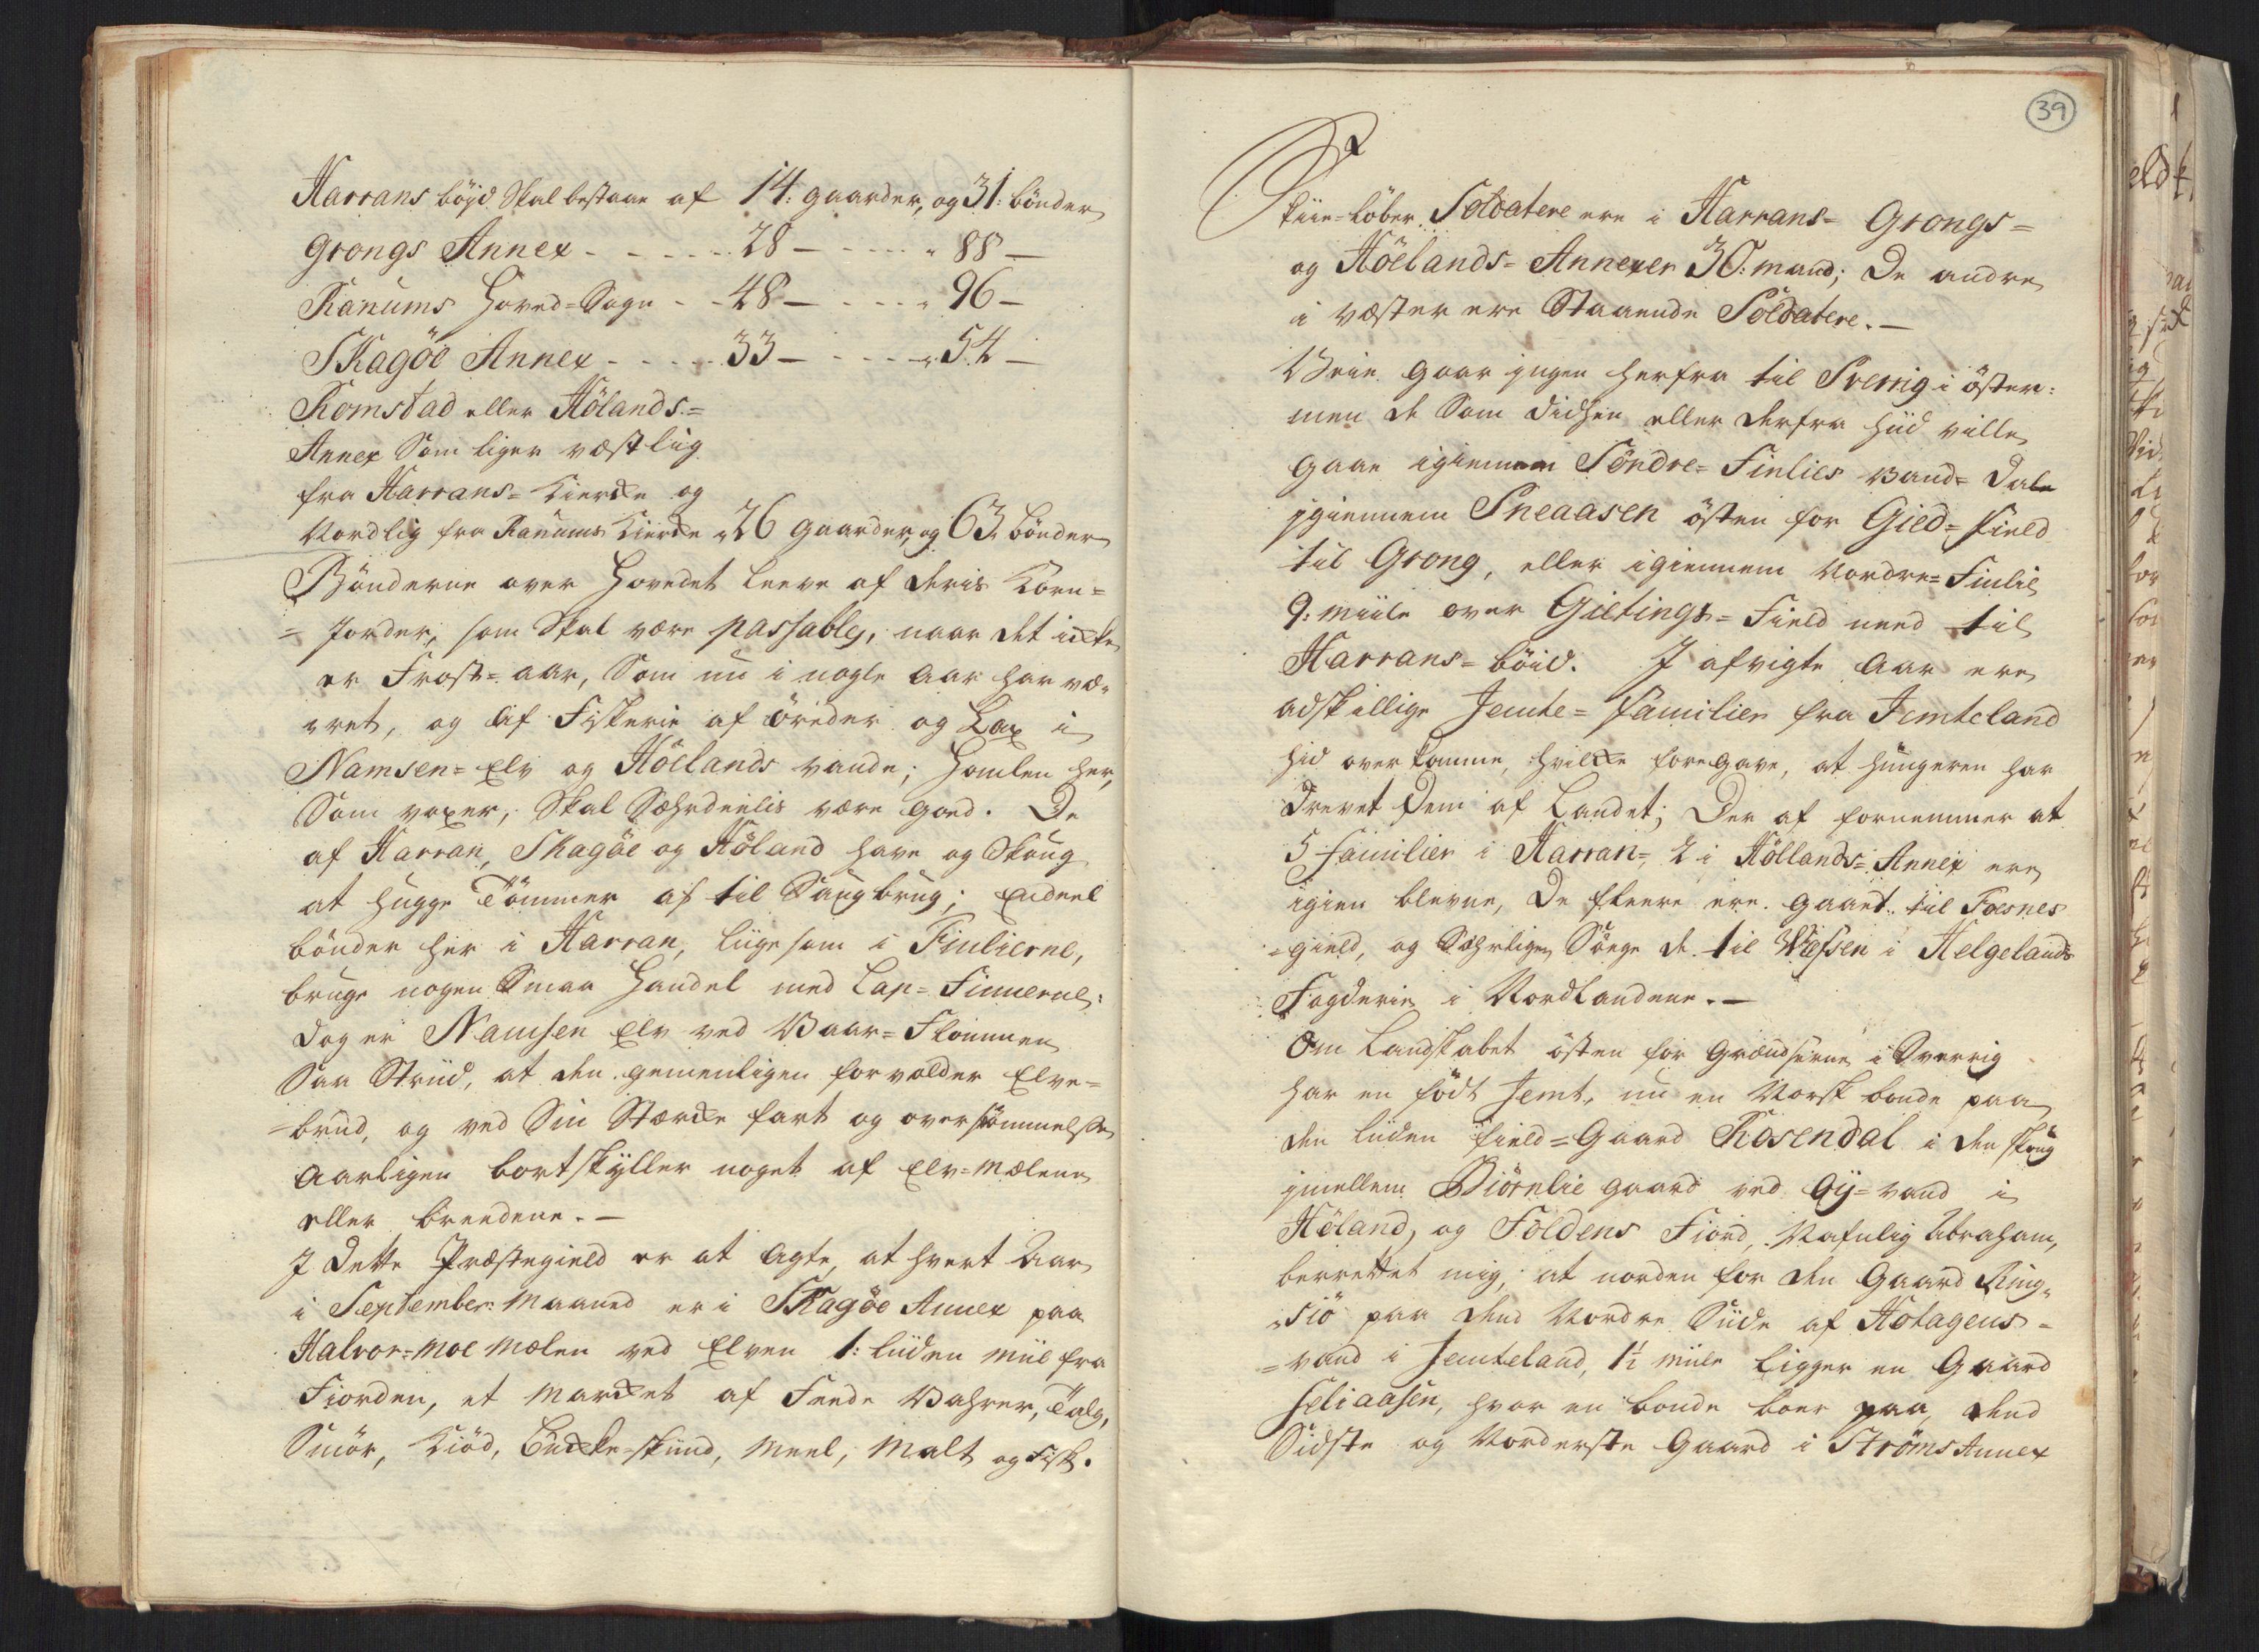 Harransböyd Skal bestaae af 14: gaarder, og 31: bönder
Grongs Annex - - - - - 28 - - - - - „ 88 -
Ranums Hoved-Sogn - - 48 - - - - - „ 96 -
Skagöe Annex - - - - - 33 - - - - - „ 54 -
Komstad eller Hölands=
Annex Som liger væstlig
fra Harrans= Kiercke og
Nordlig fra Ranums Kiercke „ 26 gaarder, og 63 bönder
Bönderne over Hovedet leeve af deris Korn=
= Jorder, som Skal være passable, naar det icke
er Frost= aar, Som nu i nogle aar har væ„
„ret, og af Fiskerie af öreder og Lax i
Namsen= Elv og Höelands vande; Homlen her,
Som voxer, Skal Sæhrdeelis være goed. De
af Harran, Skagöe og Höland have og Skoug
at hugge Tömmer af til Saugbrug; Endeel
bönder her i Harran, liigesom i Finlierne,
bruge nogen Smaa Handel med Lap= Finnerne:
dog er Namsen Elv ved Vaar= Flommen
Saa Striid, at den gemenligen forvolder Elve=
=brud, og ved Sin Stærcke fart og overströmmelse
Aarligen bortskyller noget af Elv= Mælene
eller breedene. -
I dette Præstegield er at agte, at hvert Aar
i September Maaned er i Skagöe Annex paa
Halvor= moe Mælen ved Elven 1: liiden miil fra
Fiorden, et Marcket af Feede Vahrer, Talg,
Smör, Kiöd, Bucke= skiind, Meel, Malt og Fisk.
39
Skiie= löber Soldatere ere i Harrans= Grongs=
og Höelands= Annexer 30: mand; De andre
i væster ere Staaende Soldatere. -
Veie gaar ingen herfra til Sverrig i östen:
men de Som didhen eller derfra hiid ville
gaae igiennem Söndre= Finlies Vand= Dale
igiennem Sneaasen östen for Gied= field
til Grong, eller igiennem Nordre= Finlie
9: miile over Gieltings= Field need til
Harrans= böid. I afvigte Aar ere
adskillige Jemte= familier fra Jemteland
hid over komme, hvilcke foregave, at hungeren har
drevet dem af Landet; Der af fornemmer at
5 familier i Harran=, 2 i Höllands= Annex ere
igien blevne, De fleere ere gaaet til Foesnes
= gield, og Sæhrligen Söege de til Wefsen i Helgelands
Fogderie i Nordlandene. -
Om Landskabet östen for Grændserne i Sverrig
har en födt Jemt, nu en Norsk bonde paa
den liiden field= Gaard Rosendal i den skoug
imellem Biörnlie gaard ved Øy= vand i
Höland, og Foldens Fiord, Nafnlig Abraham,
berettet mig, at norden for den Gaard Ring„
„siö paa dend Nordre Siide af Hotagens=
= vand i Jemteland, 1½ miile ligger en Gaard
Seliaasen, hvor en bonde boer paa, dend
Sidste og Norderste Gaard i Ströms Annex